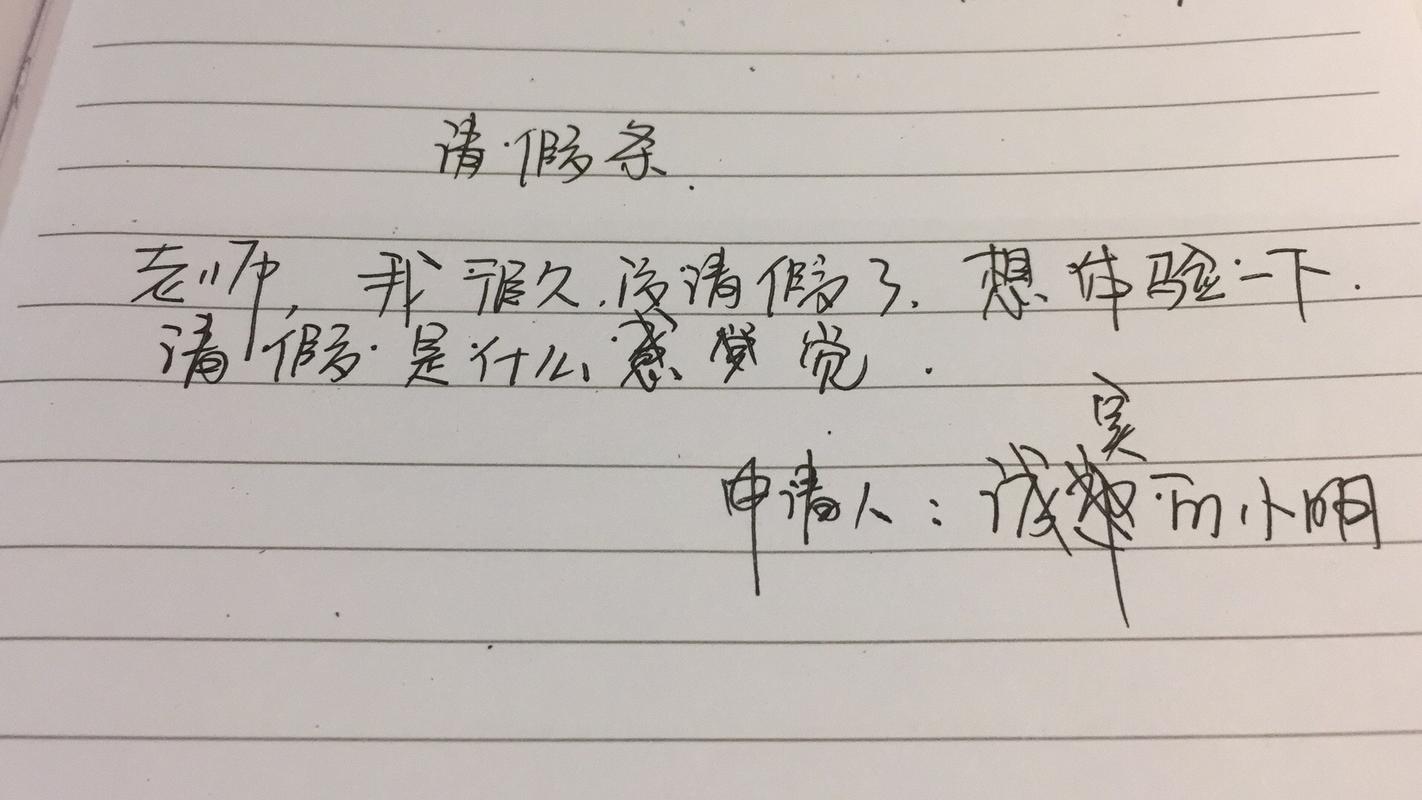 请假条.
老师, 我很久没请假了. 想体验一下.
请假是什么感觉.
申请人: 诚实的小明